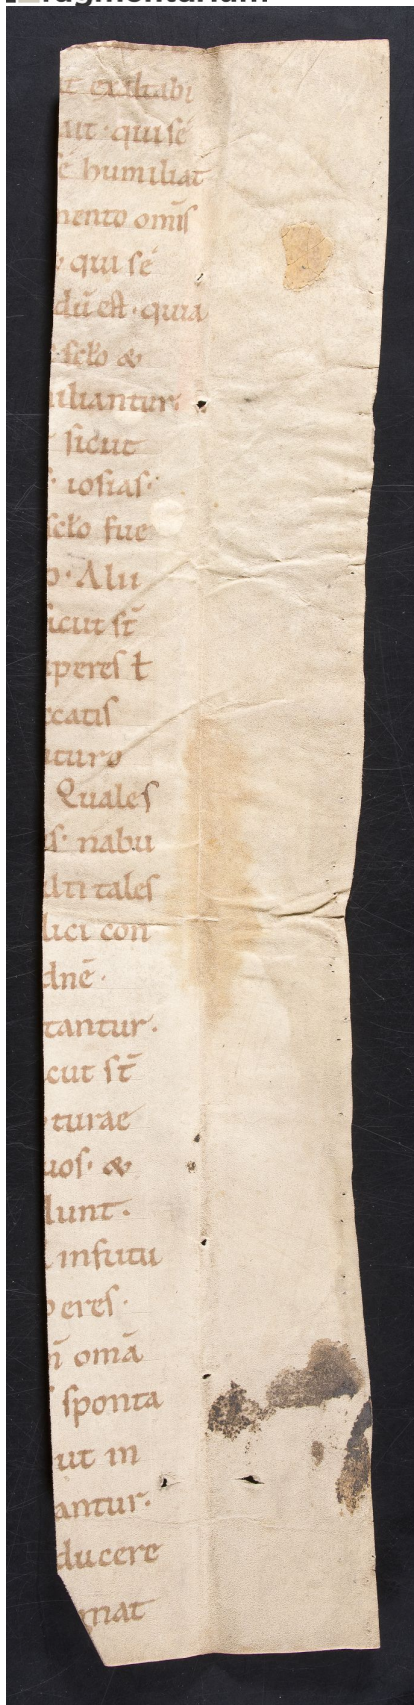 fragmentarium
t exaltabi
ut · qui se
se humiliat
mento om̅s
qui se
dū est · quia
sclo &
iliantur ·
sicut
iosias ·
sclo fue
o · Alii
icut st̅
uperes ƚ
ccatis
uturo
Quales
s · nabu
ulti tales
lici con
dn̅e ·
tantur ·
cut st̅
turae
uos · &
dunt ·
infutu
peres ·
n̄ omā
sponta
ut in
antur ·
ducere
mat